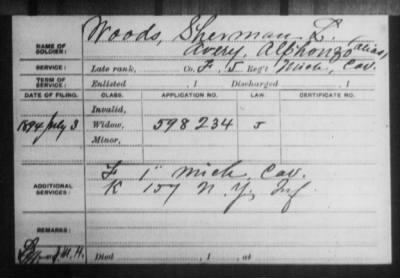 Woods, Sherman L.
NAME OF SOLDIER: Avery, Alphonzo (alias)
SERVICE: Late rank, Co. F, 5 Reg't Mich. Cav.
TERM OF SERVICE: Enlisted , 1 Discharged , 1
DATE OF FILING. CLASS. APPLICATION NO. LAW. CERTIFICATE NO.
Invalid,
1894 July 3 Widow, 598234 J
Minor,
ADDITIONAL SERVICES: F 1" Mich Cav.
K 157 N. Y. Inf
REMARKS:
Died , 1 , at